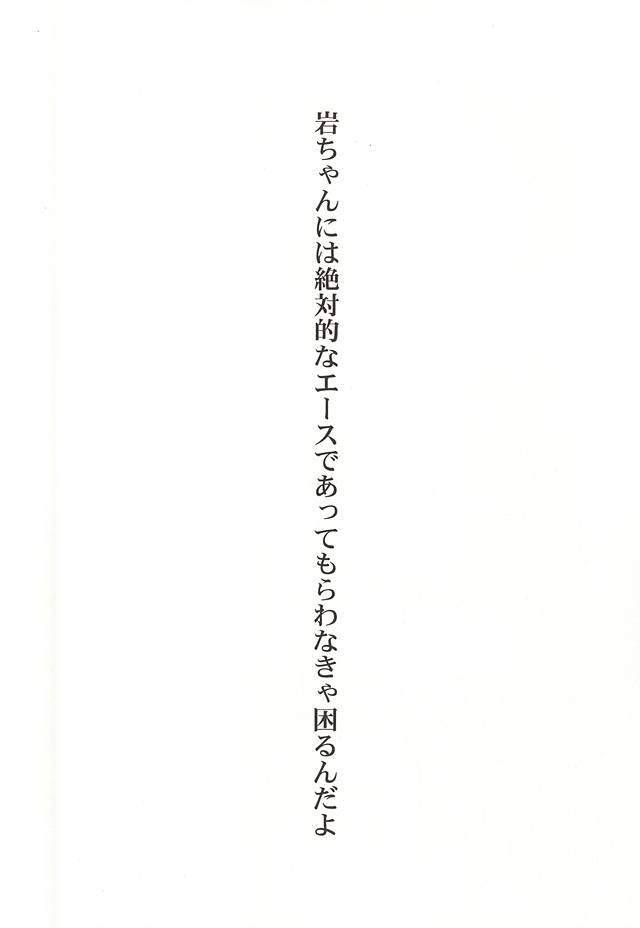 岩ちゃんには絶対的なエースであってもらわなきゃ困るんだよ